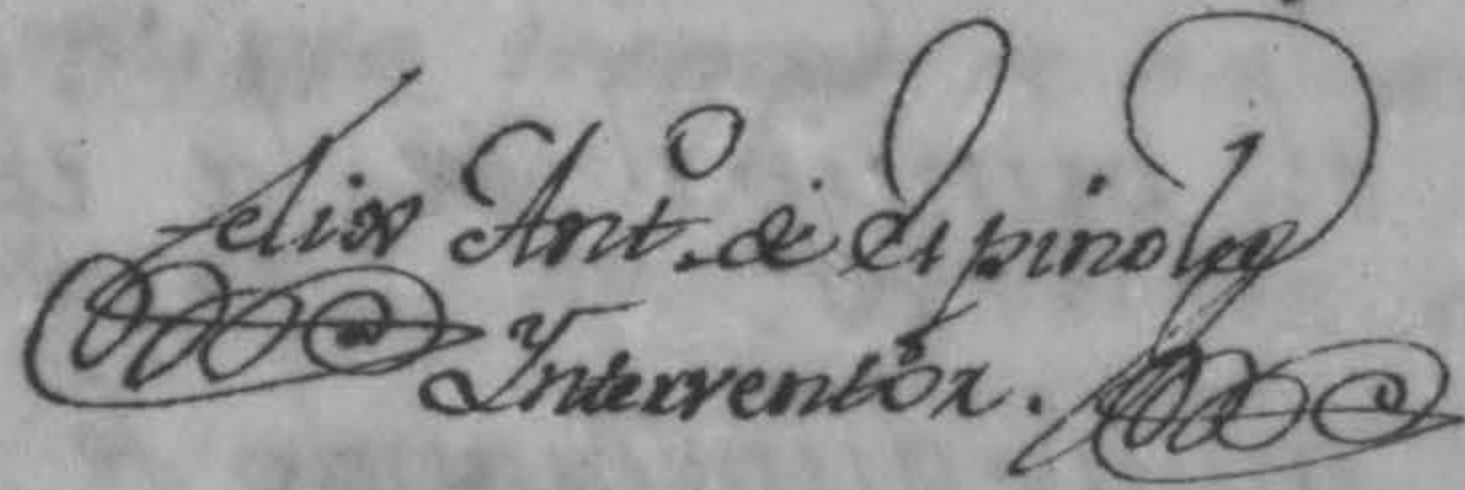 Felix Antº. de Espinola
Interventor.